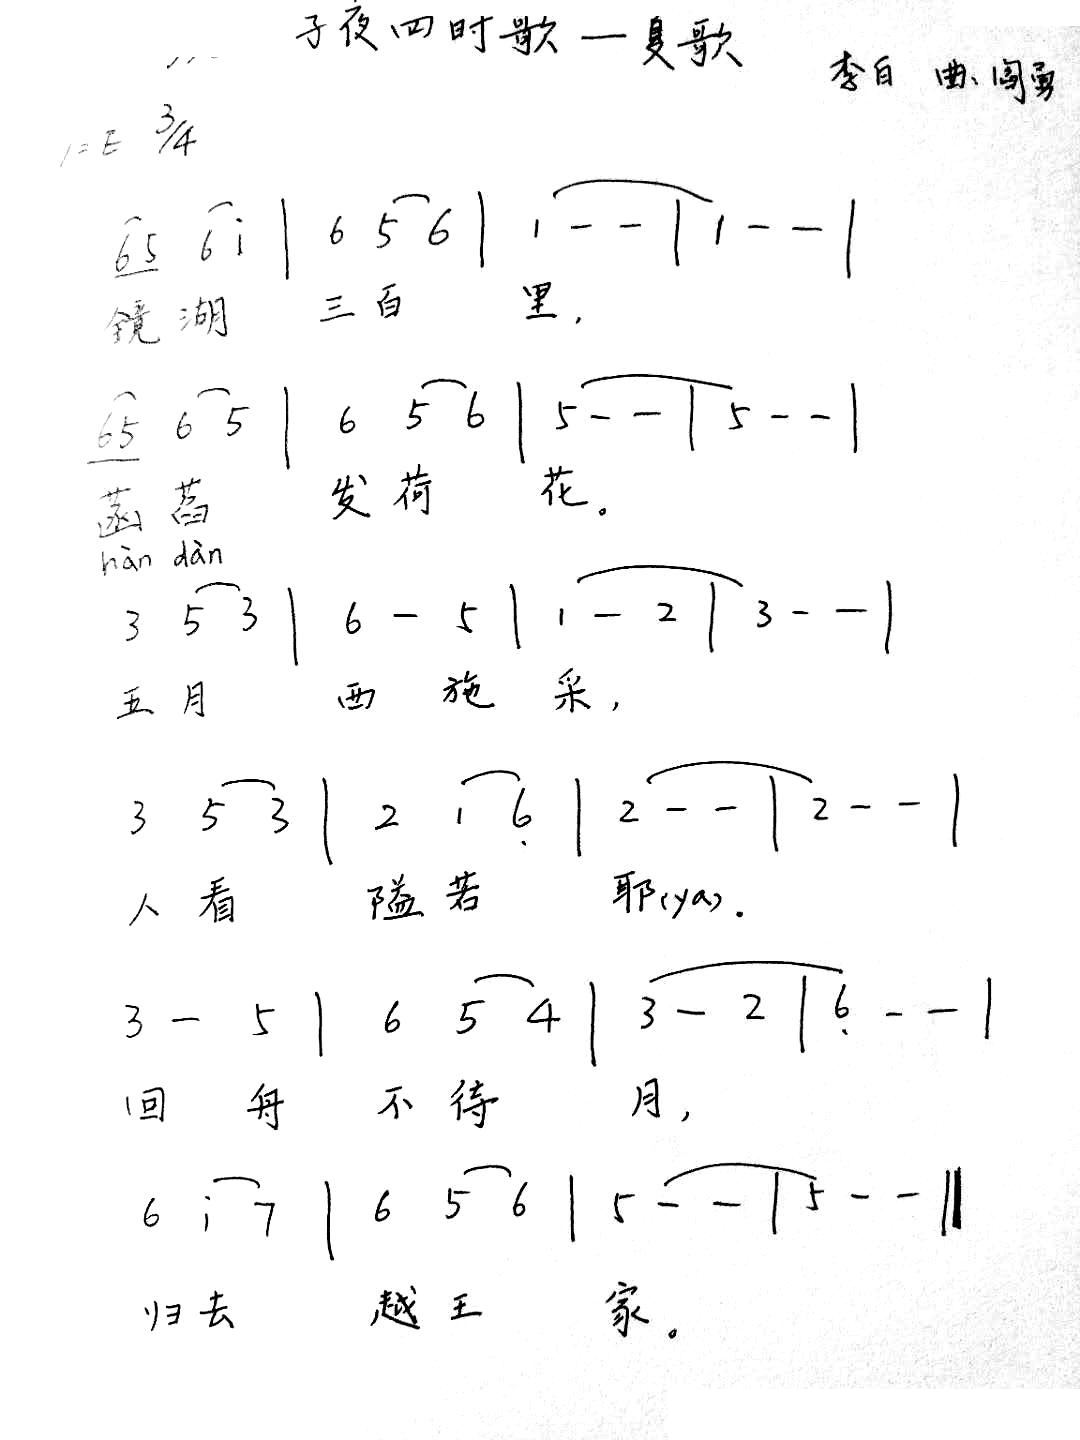 子夜四时歌一夏歌
李白 曲、阎勇
1=E 3/4
65 6i | 6 5 6 | 1 - - | 1 - - |
镜湖 三百 里,
65 6 5 | 6 5 6 | 5 - - | 5 - - |
菡萏 发荷 花。
hàn dàn
3 5 3 | 6 - 5 | 1 - 2 | 3 - - |
五月 西施 采,
3 5 3 | 2 i 6̣ | 2 - - | 2 - - |
人看 隘若 耶(ya).
3 - 5 | 6 5 4 | 3 - 2 | 6̣ - - |
回舟 不待 月,
6 i 7 | 6 5 6 | 5 - - | 5 - - ‖
归去 越王 家。